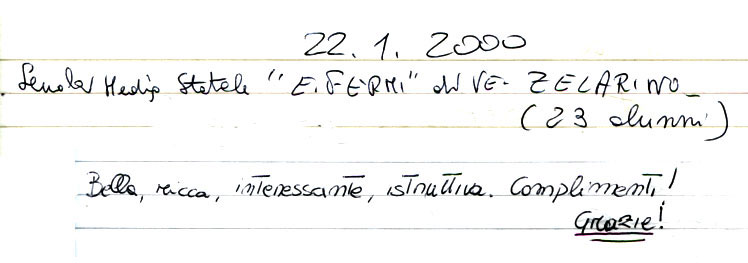 22.1.2000
Scuola Media Statale "E. FERMI" di VE- ZELARINO_
(23 alunni)
Bella, ricca, interessante, istruttiva. Complimenti!
Grazie!